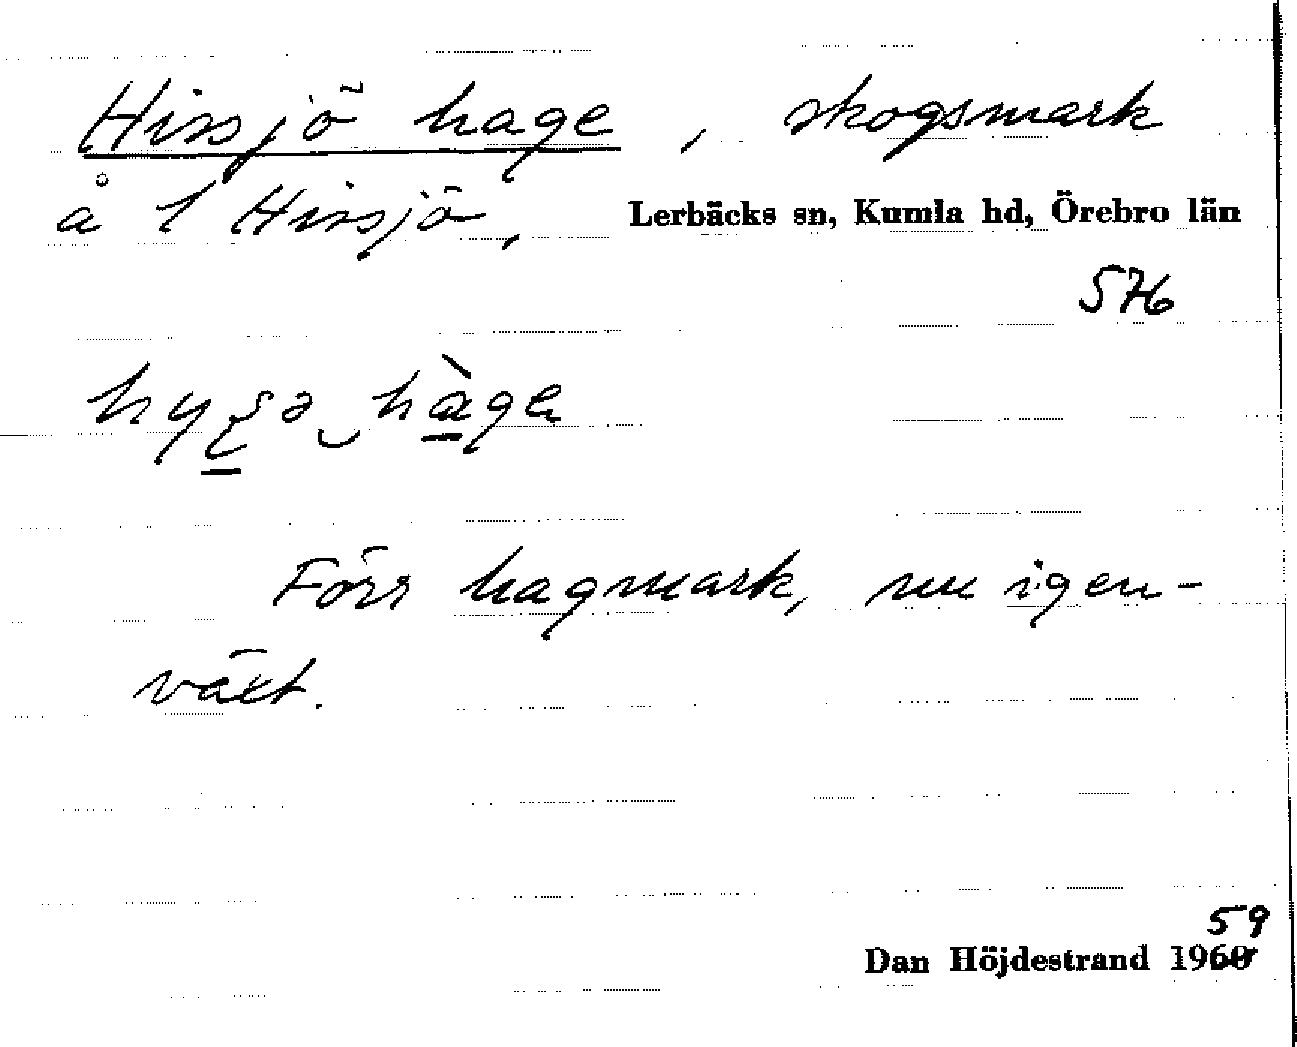 Hissjö hage, skogsmark
å 1 Hissjö, Lerbäcks sn, Kumla hd, Örebro län
576
Förr hagmark, nu igen-
växt.
59
Dan Höjdestrand 1960